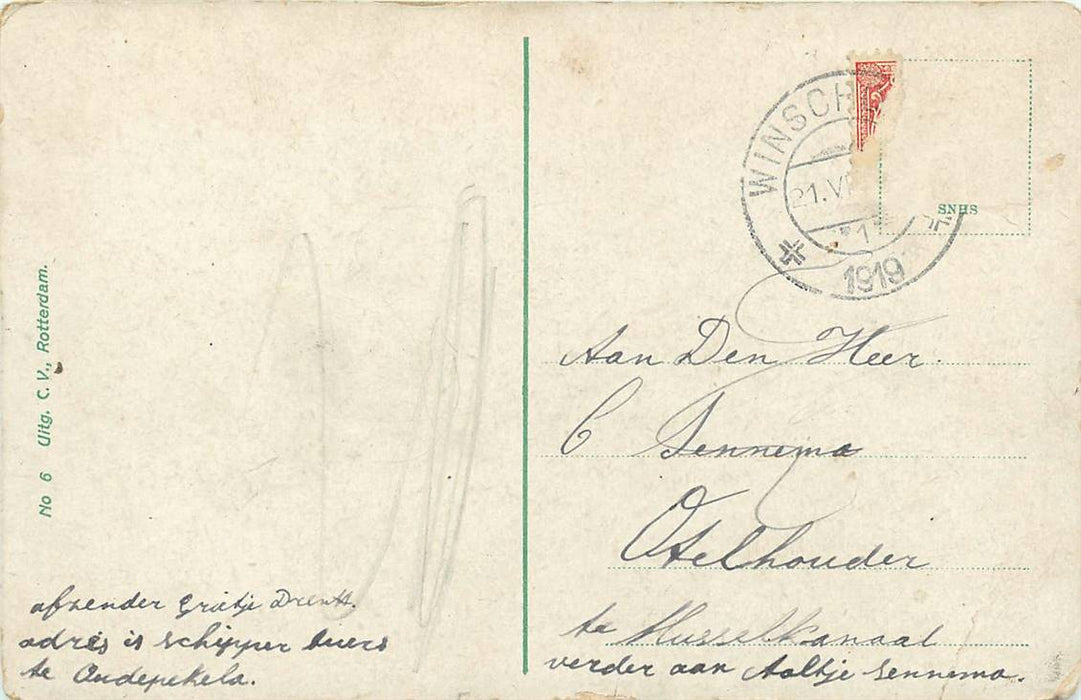 WINSCH
21.VI
1
1919
SNHS
No 6 Uitg. C. V., Rotterdam.
Aan Den Heer.
C Sennema
Otelhouder
te Musselkanaal
verder aan Aaltje Sennema.
afzender Grietje Drent.
adres is schipper
te Oudepekela.